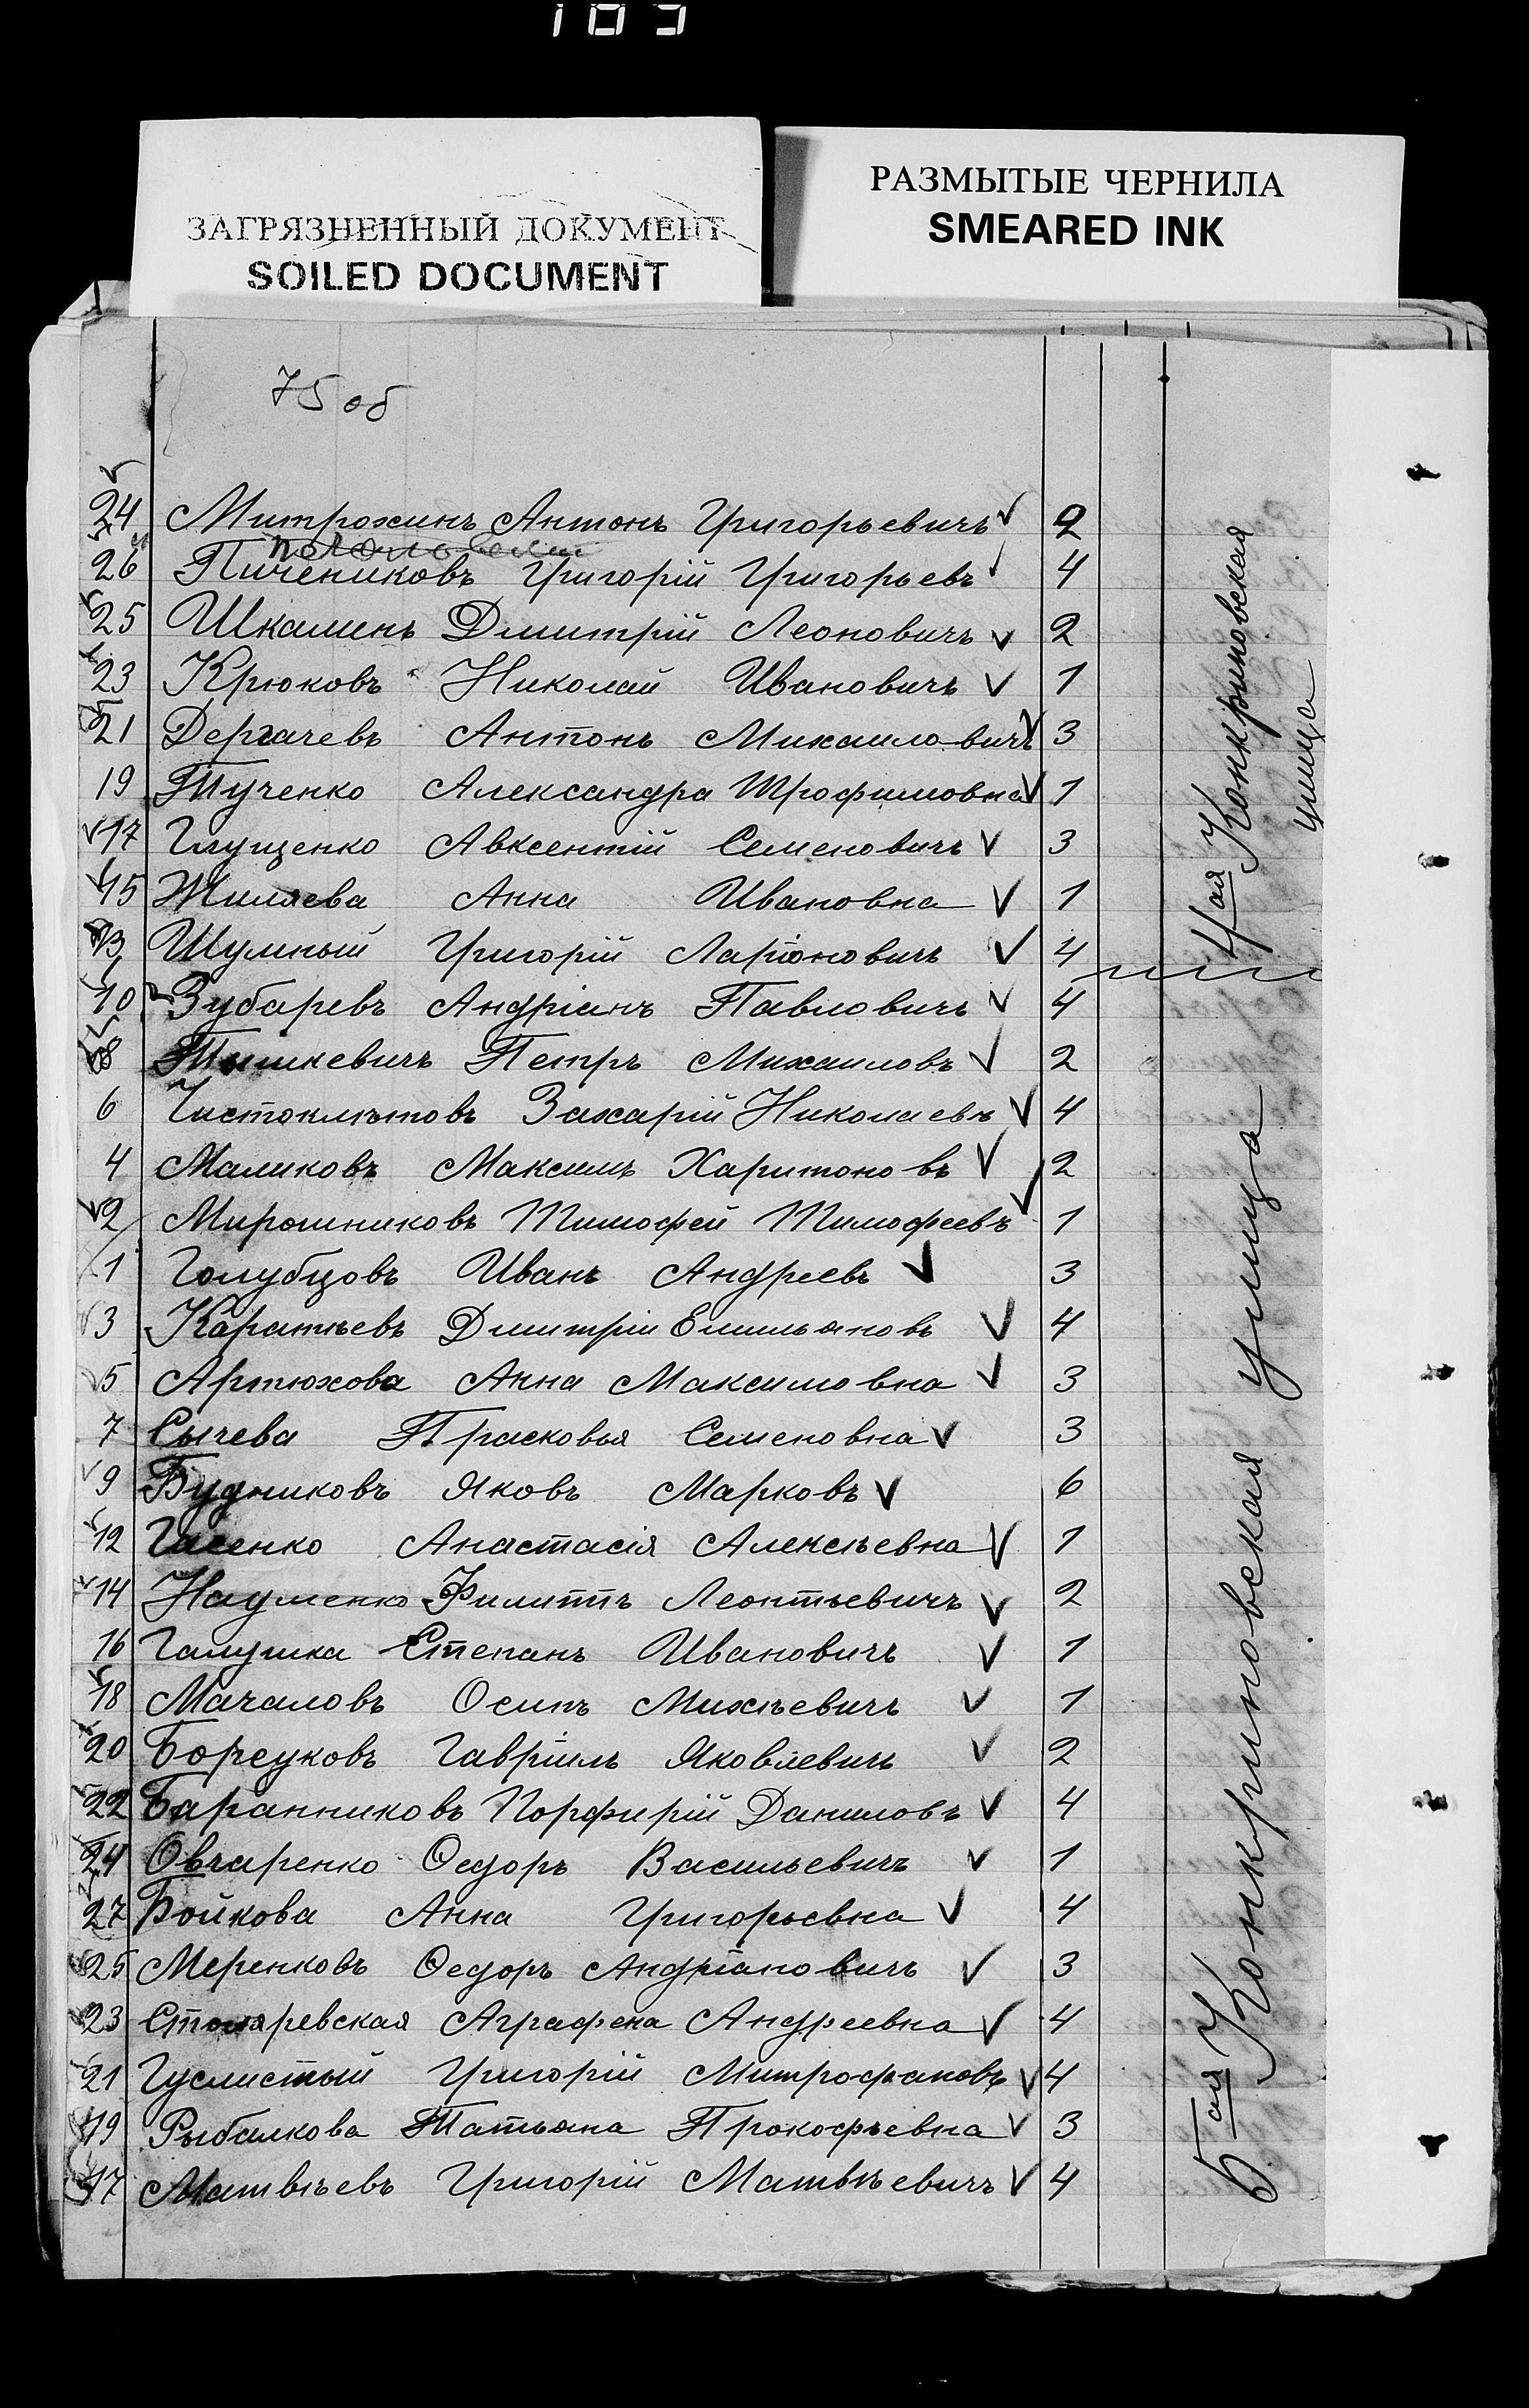 103
ЗАГРЯЗНЕННЫЙ ДОКУМЕНТ
SOILED DOCUMENT
РАЗМЫТЫЕ ЧЕРНИЛА
SMEARED INK
75 об
24 Митрохинъ Антонъ Григорьевичъ 2
26 Пичениковъ Григорій Григорьевъ 4
25 Шкаминъ Дмитрій Леоновичъ 2
23 Крюковъ Николай Ивановичъ 1
21 Дергачевъ Антонъ Михаиловичъ 3
19 Тученко Александра Трофимовна 1
17 Глущенко Авксентій Семеновичъ 3
15 Жиляева Анна Ивановна 1
13 Шумный Григорій Ларіоновичъ 4
10 Зубаревъ Андріанъ Павловичъ 4
8 Тишкевичъ Петръ Михаиловъ 2
6 Чистоклѣтовъ Захарій Николаевъ 4
4 Маликовъ Максимъ Харитоновъ 2
2 Мирошниковъ Тимофей Тимофеевъ 1
1 Голубцовъ Иванъ Андреевъ 3
3 Каратѣевъ Дмитрій Емильяновъ 4
5 Артюхова Анна Максимовна 3
7 Сычева Прасковья Семеновна 3
9 Будниковъ Яковъ Марковъ 6
12 Гасенко Анастасія Алексѣевна 1
14 Науменко Филиппъ Леонтьевичъ 2
16 Галушка Степанъ Ивановичъ 1
18 Мачаловъ Осипъ Михѣевичъ 1
20 Борсуковъ Гавріилъ Яковлевичъ 2
22 Баранниковъ Порфирій Даниловъ 4
24 Овчаренко Ѳедоръ Васильевичъ 1
27 Бойкова Анна Григорьевна 4
25 Меренковъ Ѳедоръ Андріановичъ 3
23 Столяревская Аграфена Андреевна 4
21 Гуслистый Григорій Митрофановъ 4
19 Рыбалкова Татьяна Прокофьевна 3
17 Матвѣевъ Григорій Матвѣевичъ 4
4ая Конкриновская
улица
5ая Конкриновская улица